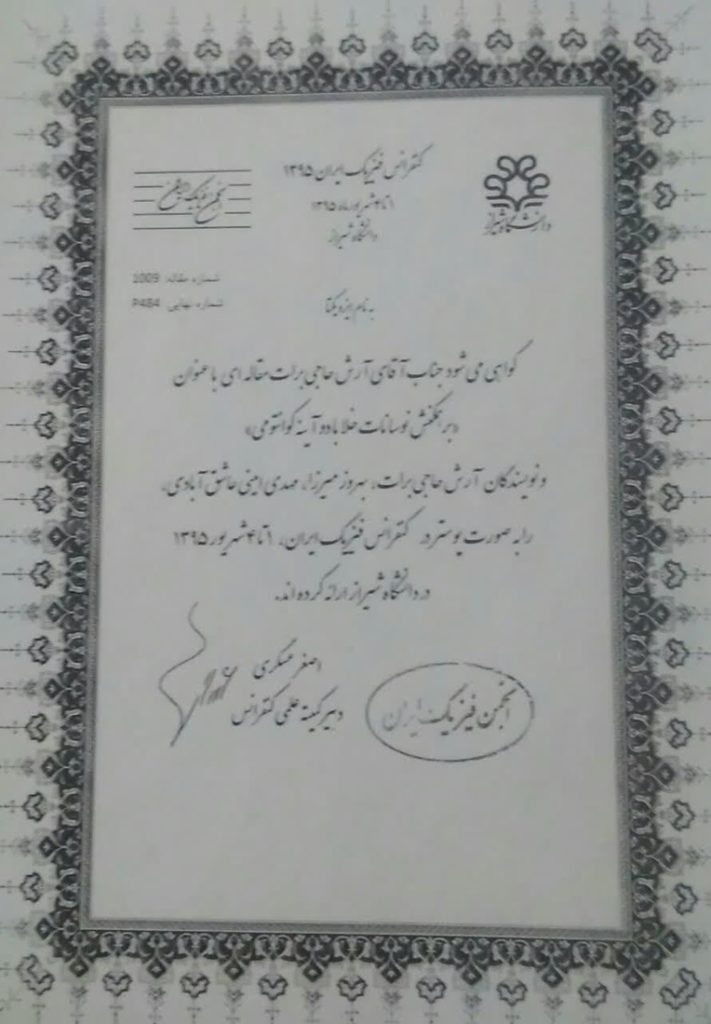 کنفرانس فیزیک ایران ۱۳۹۵
۱ تا ۴ شهریور ماه ۱۳۹۵
دانشگاه شیراز
دانشگاه شیراز
انجمن فیزیک ایران
شماره مقاله: 1009
شماره نهایی: P484
به نام ایزد یکتا
گواهی می شود جناب آقای آرش حاجی برات مقاله ای با عنوان
«برهمکنش نوسانات خلا با دو آینه کوانتومی»
و نویسندگان آرش حاجی برات، بهروز میرزا، مهدی امینی عاشق آبادی،
را به صورت پوستر در کنفرانس فیزیک ایران، ۱ تا ۴ شهریور ۱۳۹۵
در دانشگاه شیراز ارائه کرده اند.
اصغر عسگری
دبیر کمیته علمی کنفرانس
انجمن فیزیک ایران